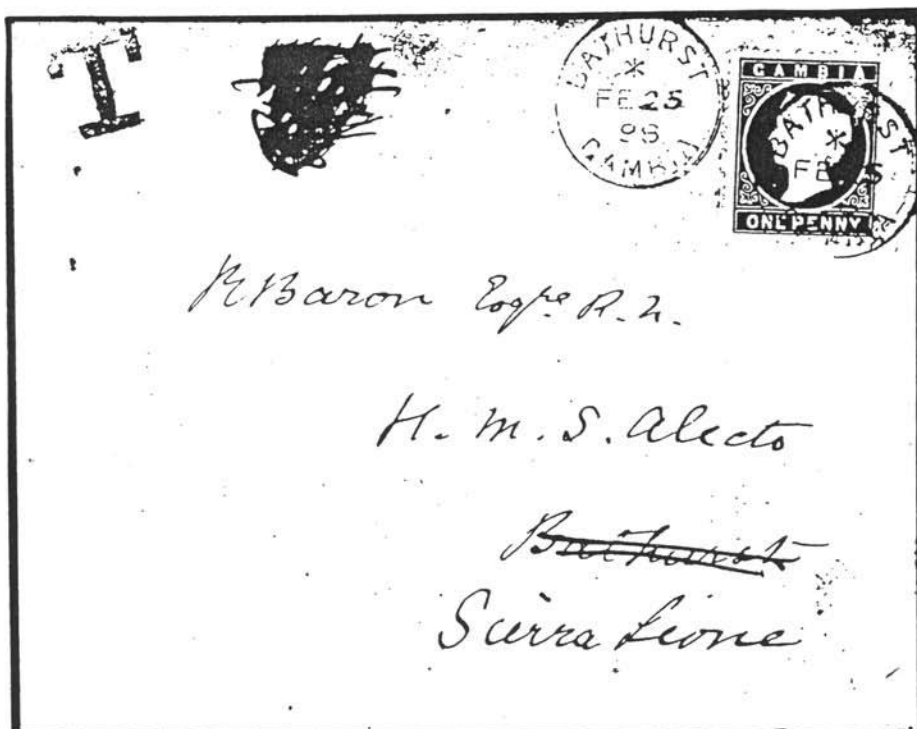 T
BATHURST
*
FE 25
98
GAMBIA
GAMBIA
BATHURST
*
FE 5
ONE PENNY
R Baron Esqre R.N.
H.M.S. Alecto
Bathurst
Sierra Leone